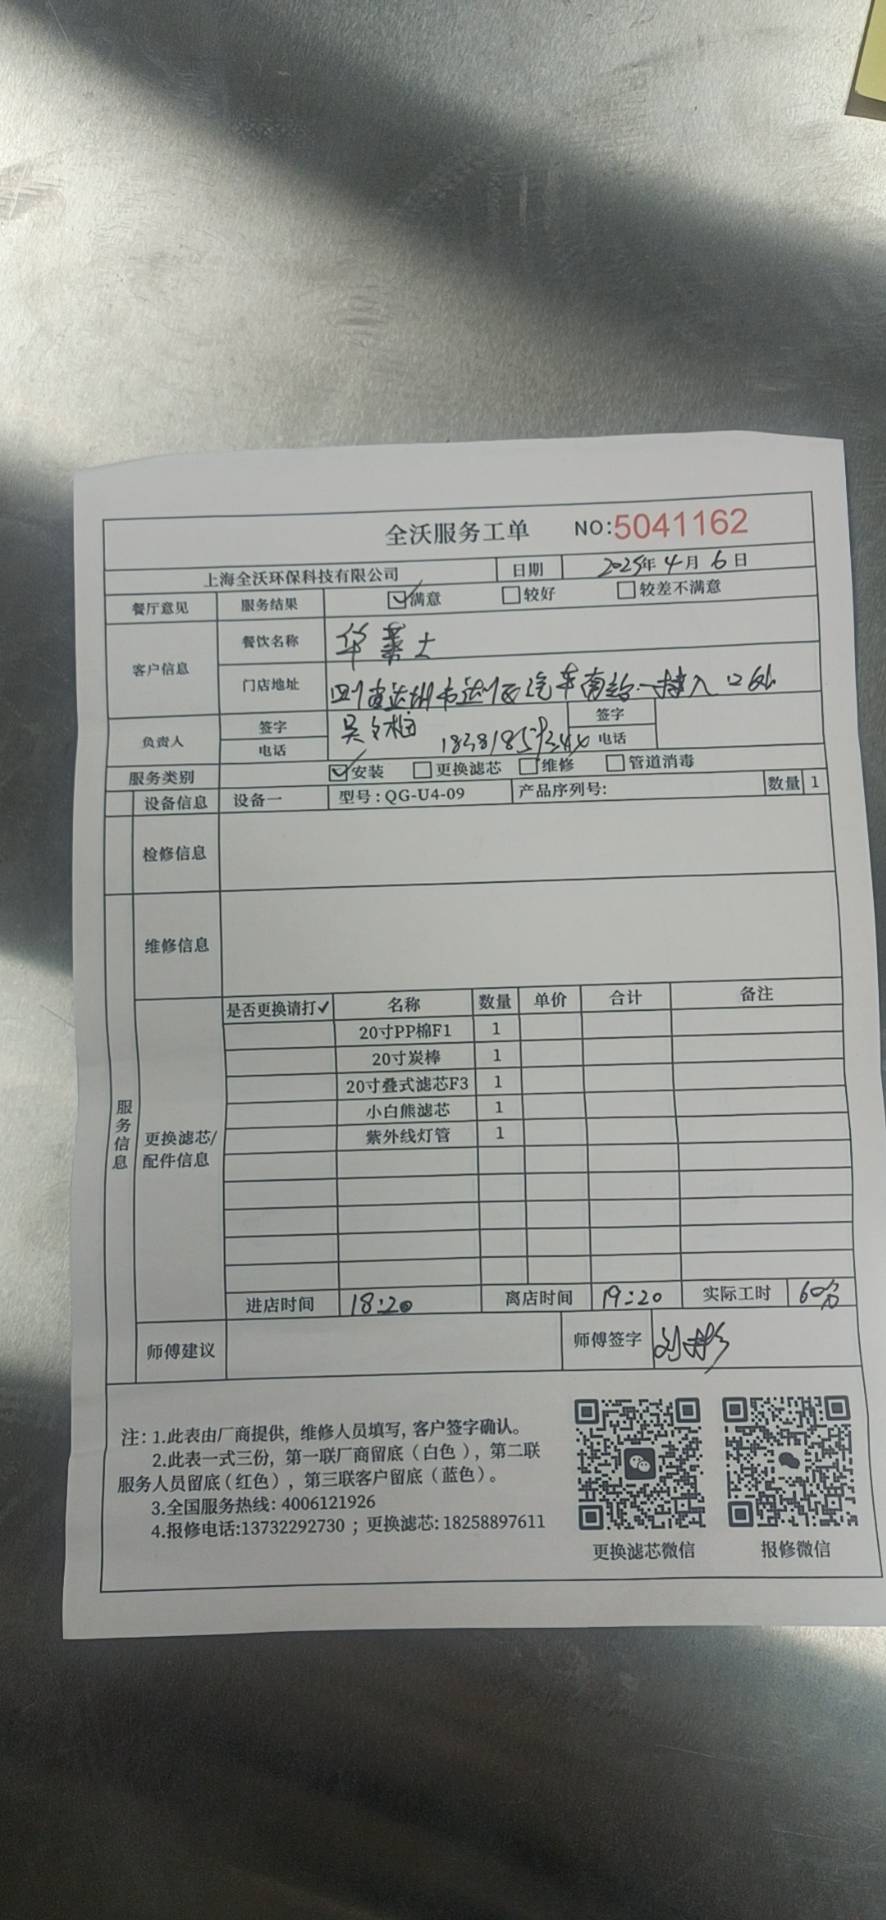 全沃服务工单 NO:5041162
上海全沃环保科技有限公司 日期 2025年4月6日
餐厅意见 服务结果 ☑满意 □较好 □较差不满意
客户信息 餐饮名称 华莱士
门店地址 四川省达州市达川区汽车南站一楼入口处
负责人 签字 吴 签字
电话 电话
服务类别 ☑安装 □更换滤芯 □维修 □管道消毒
设备信息 设备一 型号:QG-U4-09 产品序列号: 数量 1
检修信息
服务信息
维修信息
更换滤芯/配件信息
是否更换请打✓ 名称 数量 单价 合计 备注
20寸PP棉F1 1
20寸炭棒 1
20寸叠式滤芯F3 1
小白熊滤芯 1
紫外线灯管 1
进店时间 18:20 离店时间 19:20 实际工时 60分
师傅建议 师傅签字
注: 1.此表由厂商提供, 维修人员填写, 客户签字确认。
2.此表一式三份, 第一联厂商留底(白色), 第二联
服务人员留底(红色), 第三联客户留底(蓝色)。
3.全国服务热线: 4006121926
4.报修电话:13732292730 ; 更换滤芯: 18258897611
更换滤芯微信 报修微信